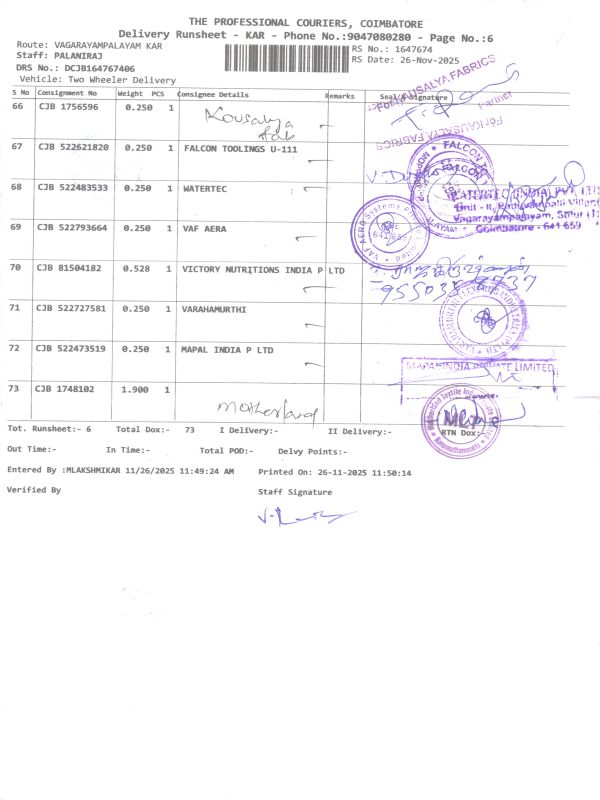 THE PROFESSIONAL COURIERS, COIMBATORE
Delivery Runsheet - KAR - Phone No.:9047080280 - Page No.:6
Route: VAGARAYAMPALAYAM KAR
RS No.: 1647674
Staff: PALANIRAJ
RS Date: 26-Nov-2025
DRS No.: DCJB164767406
Vehicle: Two Wheeler Delivery
S No Consignment No Weight PCS Consignee Details Remarks Seal/ Signature
66 CJB 1756596 0.250 1 Kousalya Fab
For KAUSALYA FABRICS
Partner
For KAUSALYA FABRICS
67 CJB 522621820 0.250 1 FALCON TOOLINGS U-111
FALCON
68 CJB 522483533 0.250 1 WATERTEC
WATERTEC (INDIA) PVT LTD
Unit - II,
Vagarayampalayam,
Coimbatore - 641 659
69 CJB 522793664 0.250 1 VAF AERA
VAF AERA Systems
70 CJB 81504182 0.528 1 VICTORY NUTRITIONS INDIA P LTD
71 CJB 522727581 0.250 1 VARAHAMURTHI
72 CJB 522473519 0.250 1 MAPAL INDIA P LTD
MAPAL INDIA PRIVATE LIMITED
73 CJB 1748102 1.900 1 Motherland
Tot. Runsheet:- 6 Total Dox:- 73 I Delivery:- II Delivery:- RTN Dox:-
Out Time:- In Time:- Total POD:- Delvy Points:-
Entered By :MLAKSHMIKAR 11/26/2025 11:49:24 AM Printed On: 26-11-2025 11:50:14
Verified By Staff Signature